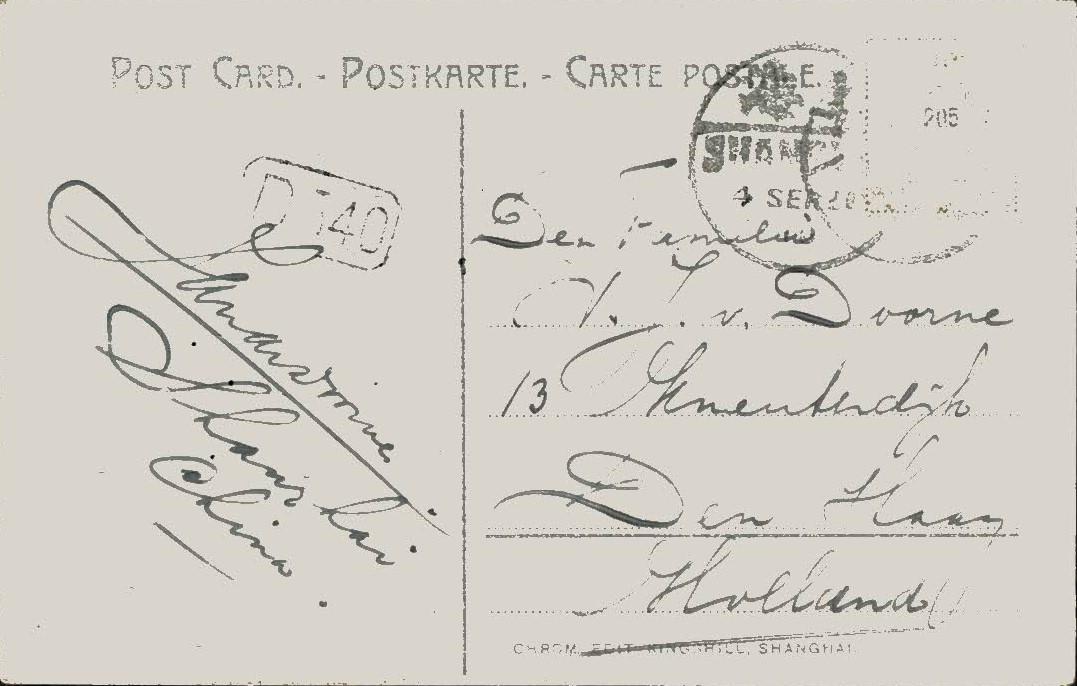 POST CARD. - POSTKARTE. - CARTE POSTALE.
205
SHANG
4 SEP
40
Den Familie
V. J. v. Doorne
13
Den Haag
Holland
Shanghai
China
CHROM. EDIT. KINGSHILL, SHANGHAI.